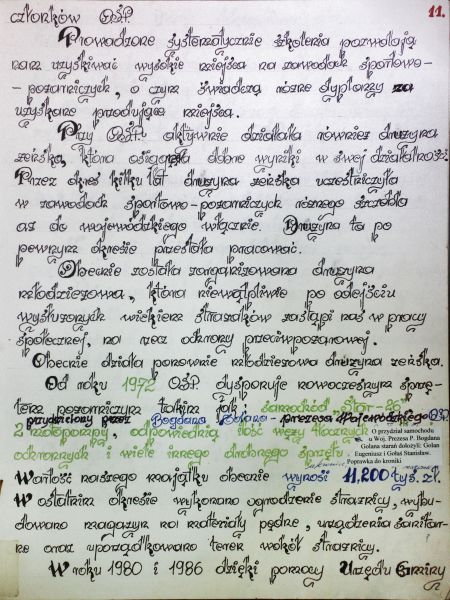 11.
członków OSP.
Prowadzone systematycznie szkolenia pozwalają
nam uzyskiwać wysokie miejsca na zawodach sportowo-
- pożarniczych, o czym świadczą różne dyplomy za
uzyskane przodujące miejsca.
Przy OSP. aktywnie działała również drużyna
żeńska, która osiągała dobre wyniki w swej działalności.
Przez okres kilku lat drużyna żeńska uczestniczyła
w zawodach sportowo-pożarniczych różnego szczebla
aż do wojewódzkiego włącznie. Drużyna ta po
pewnym okresie przestała pracować.
Obecnie została zorganizowana drużyna
młodzieżowa, która niewątpliwie po odejściu
wysłużonych wiekiem strażaków zastąpi nas w pracy
społecznej, na rzecz ochrony przeciwpożarowej.
Obecnie działa ponownie młodzieżowa drużyna żeńska.
Od roku 1972 OSP. dysponuje nowoczesnym sprzę-
tem pożarniczym takim jak: samochód "Star-26"
przydzielony przez Bogdana Golana - prezesa Wojewódzkiego OSP.
2 motopompy, odpowiednią ilość węży tłocznych
ochronnych i wiele innego drobnego sprzętu.
O przydział samochodu
u Woj. Prezesa P. Bogdana
Golana starań dołożyli: Golan
Eugeniusz i Golaś Stanisław.
Poprawka do kroniki
Wartość naszego majątku obecnie wynosi 11.200 tyś. zł.
W ostatnim okresie wykonano ogrodzenie strażnicy, wybu-
dowano magazyn na materiały pędne, urządzenia sanitar-
ne oraz uporządkowano teren wokół strażnicy.
W roku 1980 i 1986 dzięki pomocy Urzędu Gminy